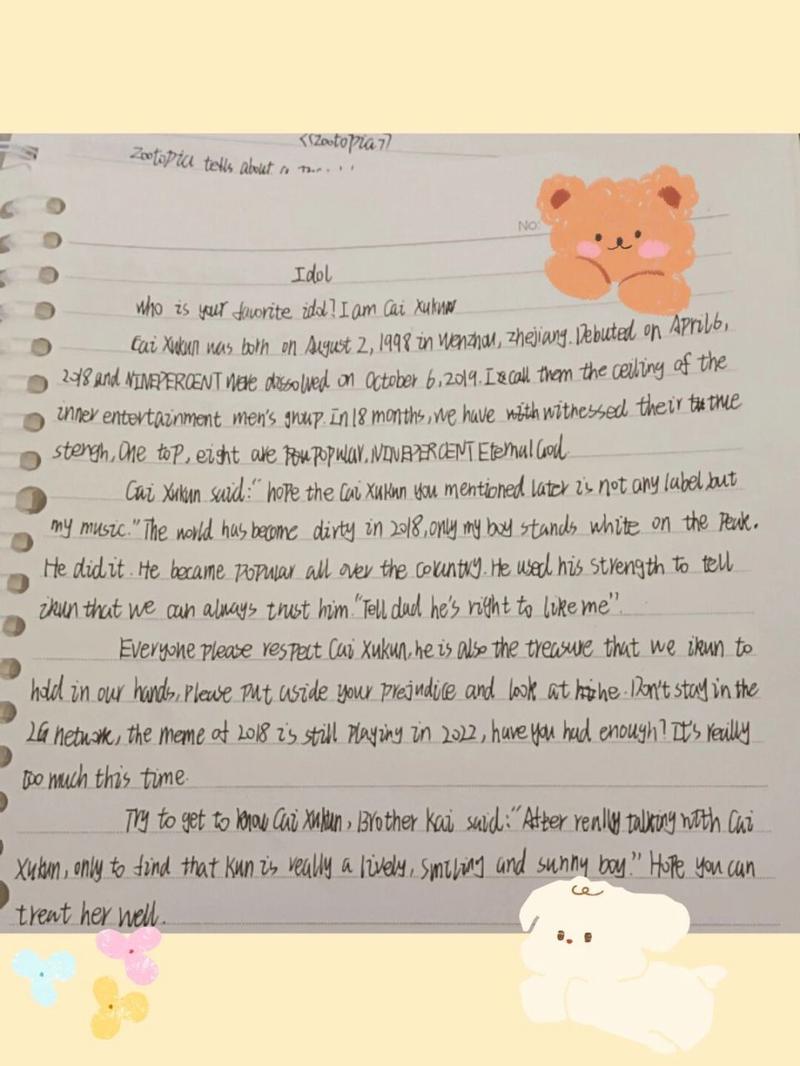 《Zootopia》
Zootopia tells about a
No:
Idol
who is your favorite idol? I am Cai Xukun
Cai Xukun was both on August 2, 1998 in Wenzhou, Zhejiang. Debuted on April 6,
2018 and NINEPERCENT were dissolved on October 6, 2019. I call them the ceiling of the
inner entertainment men's group. In 18 months, we have witnessed their true
stengh, One top, eight are popular, NINEPERCENT Eternal God
Cai Xukun said: "hope the Cai Xukun you mentioned later is not any label, but
my music." The world has become dirty in 2018, only my boy stands white on the peak.
He did it. He became popular all over the country. He used his strength to tell
ikun that we can always trust him. "Tell dad he's right to like me".
Everyone please respect Cai Xukun, he is also the treasure that we ikun to
hold in our hands, Please put aside your prejudice and look at he. Don't stay in the
2G network, the meme of 2018 is still playing in 2022, have you had enough? It's really
too much this time.
Try to get to know Cai Xukun, Brother Kai said: "After really talking with Cai
Xukun, only to find that Kun is really a lively, smiling and sunny boy." Hope you can
treat her well.